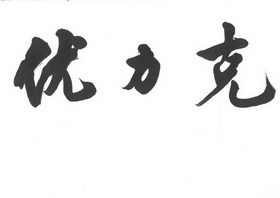 优力克